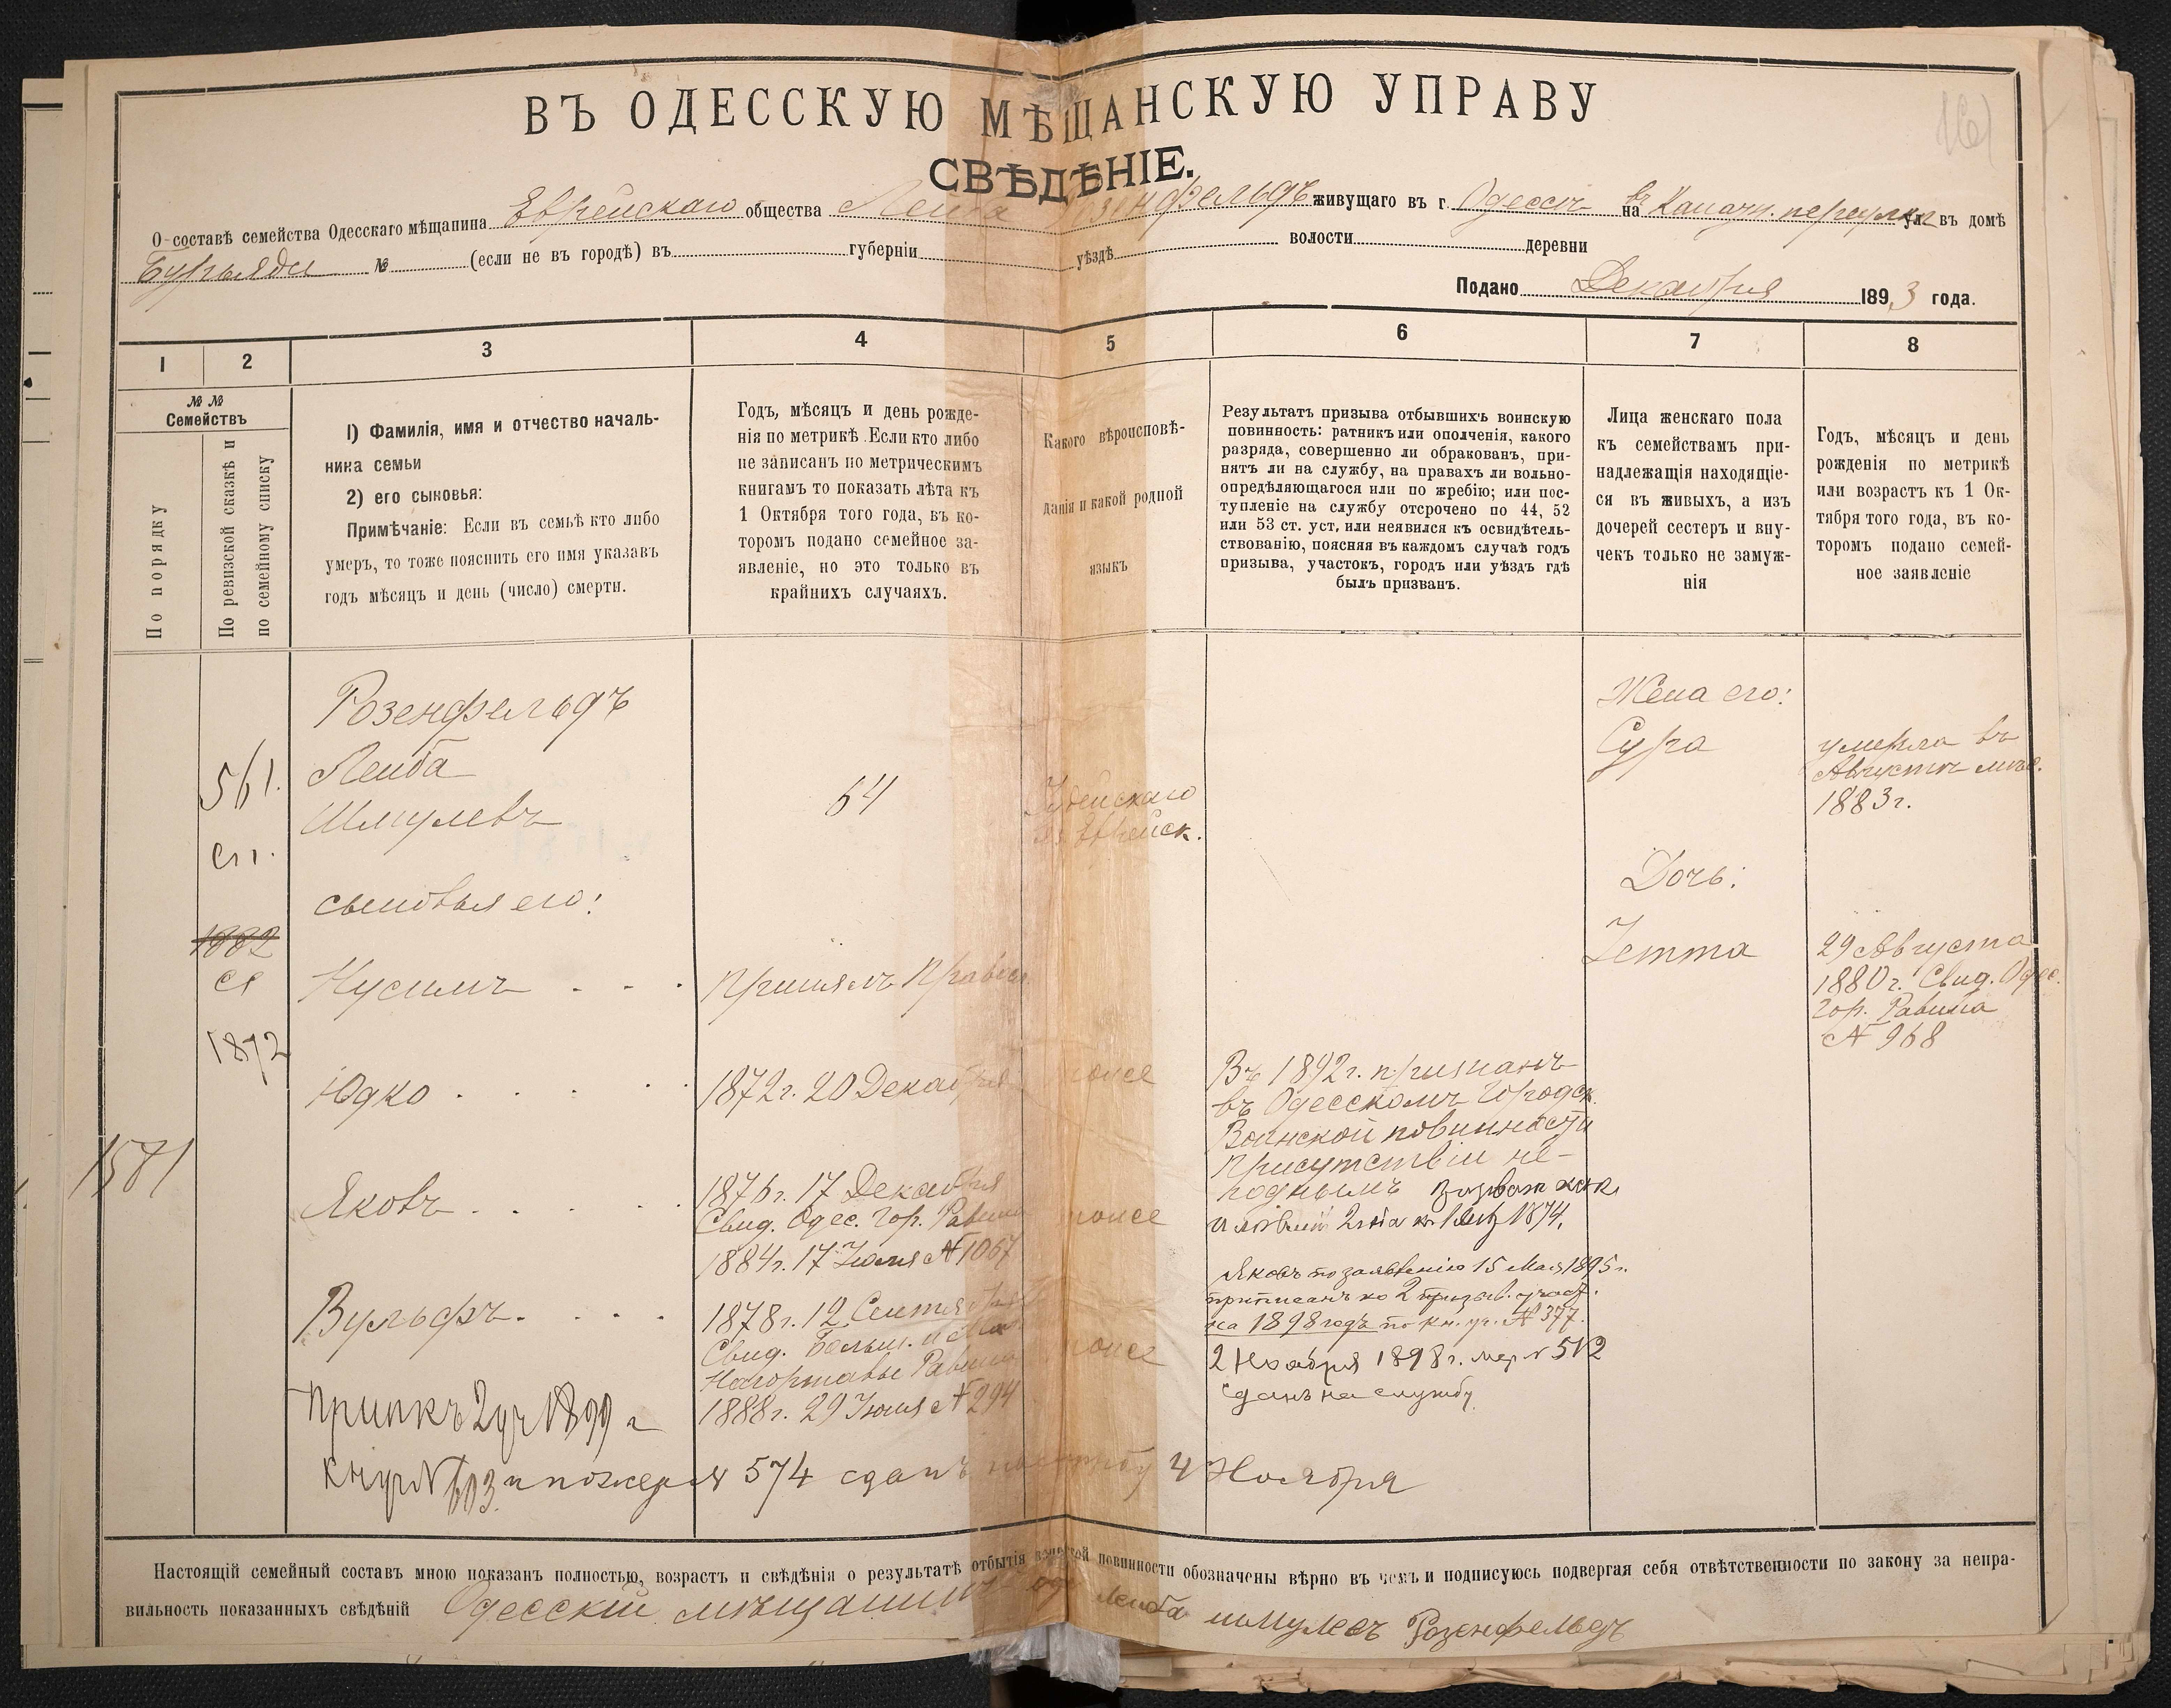 ВЪ ОДЕССКУЮ МѢЩАНСКУЮ УПРАВУ
СВѢДѢНІЕ.
О составѣ семейства Одесскаго мѣщанина Еврейскаго общества Лейба Розенфельдъ живущаго въ г. Одессѣ на въ Канатн. переулкѣ ул. въ домѣ
№ (если не въ городѣ) въ губерніи уѣздѣ волости деревни
Подано Декабря 1893 года.
1
2
3
4
5
6
7
8
№ №
Семействъ
По порядку
По ревизской сказкѣ и
по семейному списку
1) Фамилія, имя и отчество началь-
ника семьи
2) его сыновья:
Примѣчаніе: Если въ семьѣ кто либо
умеръ, то тоже пояснить его имя указавъ
годъ мѣсяцъ и день (число) смерти.
Годъ, мѣсяцъ и день рожде-
нія по метрикѣ. Если кто либо
не записанъ по метрическимъ
книгамъ то показать лѣта къ
1 Октября того года, въ ко-
торомъ подано семейное за-
явленіе, но это только въ
крайнихъ случаяхъ.
Какого вѣроисповѣ-
данія и какой родной
языкъ
Результатъ призыва отбывшихъ воинскую
повинность: ратникъ или ополченія, какого
разряда, совершенно ли обракованъ, при-
нятъ ли на службу, на правахъ ли вольно-
опредѣляющагося или по жребію; или пос-
тупленіе на службу отсрочено по 44, 52
или 53 ст. уст, или неявился къ освидѣтель-
ствованію, поясняя въ каждомъ случаѣ годъ
призыва, участокъ, городъ или уѣздъ гдѣ
былъ призванъ.
Лица женскаго пола
къ семействамъ при-
надлежащія находящіе-
ся въ живыхъ, а изъ
дочерей сестеръ и вну-
чекъ только не замуж-
нія
Годъ, мѣсяцъ и день
рожденія по метрикѣ
или возрастъ къ 1 Ок-
тября того года, въ ко-
торомъ подано семей-
ное заявленіе
561.
1882
1872
1581
Розенфельдъ
Лейба
Шмулевъ
64
Іудейскаго
Еврейск.
Жена его:
Сура
умерла въ
Августѣ мѣс.
1883 г.
сыновья его:
Дочь:
Нусимъ
Принялъ
Іетта
29 Августа
1880 г. Свид. Одес.
Гор. Равина
№ 968
Юдко
1872 г. 20 Декабря
тоже
Въ 1892 г. признанъ
въ Одесскомъ Городск.
Воинской повинности
присутствіи не-
годнымъ
1874.
Яковъ
1876 г. 17 Декабря
Свид. Одес. Гор. Равина
1884 г. 17 Іюля № 1067
тоже
Яковъ по заявленію 15 Мая 1895 г.
приписанъ ко 2 призыв. участ.
на 1898 годъ по кн. уч. № 377.
2 Ноября 1898 г. жер. № 512
сданъ на службу
Вульфъ
1878 г. 12 Сентября
Свид. Больш. и Мал.
Равина
1888 г. 29 Іюля № 294
тоже
Прип къ 2 уч 1899 г
кн уч № 603 и по жер № 574 сданъ на службу 4 Ноября
Настоящій семейный составъ мною показанъ полностью, возрастъ и свѣдѣнія о результатѣ отбытія воинской повинности обозначены вѣрно въ чемъ и подписуюсь подвергая себя отвѣтственности по закону за непра-
вильность показанныхъ свѣдѣній Одесскій мѣщанинъ Лейба Шмулевъ Розенфельдъ